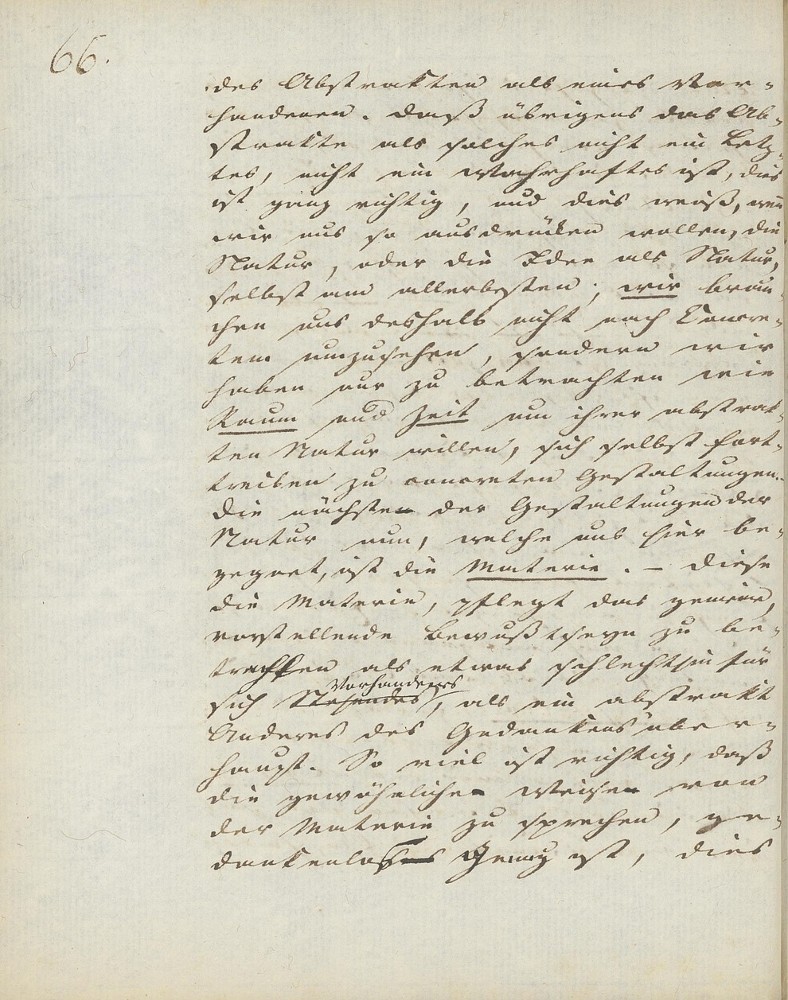 66.
des Abstrakten als eines Vor-
handenen. Daß übrigens das Ab-
strakte als solches nicht ein Letz-
tes, nicht ein Wahrhaftes ist, dies
ist ganz richtig, und dies weiß, wenn
wir uns so ausdrücken wollen, die
Natur, oder die Idee als Natur,
selbst am allerbesten; wir brau-
chen uns deshalb nicht nach Concre-
tem umzusehen, sondern wir
haben nur zu betrachten wie
Raum und Zeit um ihrer abstrak-
ten Natur willen, sich selbst fort-
treiben zu concreten Gestaltungen.
Die nächste der Gestaltungen der
Natur nun, welche uns hier be-
gegnet, ist die Materie. – Diese
die Materie, pflegt das gemeine,
vorstellende Bewußtseyn zu be-
trachten als etwas schlechthin für
Vorhandenes
sich Stehendes, als ein abstrakt
Anderes des Gedankens über-
haupt. So viel ist richtig, daß
die gewöhnliche Weise von
der Materie zu sprechen, ge-
dankenlos genug ist, dies